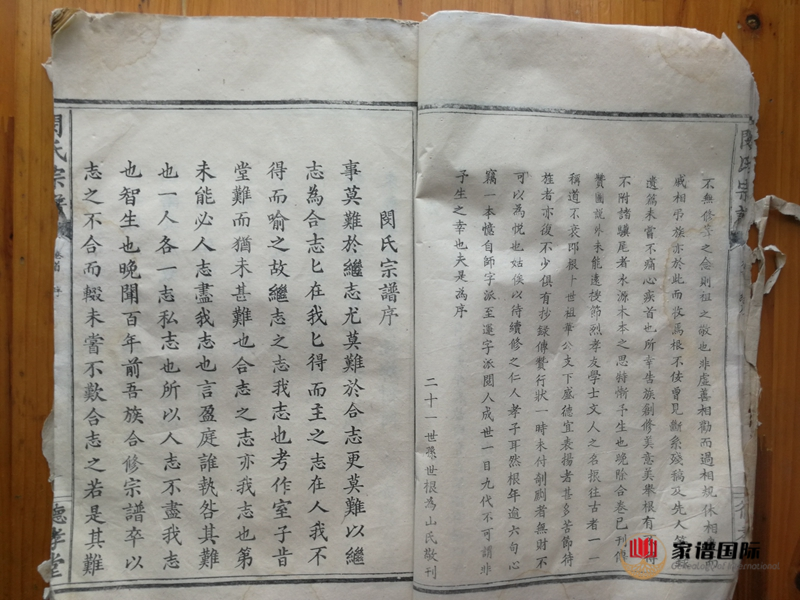 不無修葺之念則祖之敬也非虛善相勸而過相規休相
戚相弔族亦於此而敦焉根不佞曾見斷系殘稿及先人
遺筠未嘗不痛心疾首也所幸吾族創修美意美舉根有
不附諸驥尾者水源木本之思特慚予生也晚除合卷已刊傳
贊圖說外未能遺搜節烈孝友學士文人之名氓往古者一一
稱道不衰即根十世祖華公支下盛德宜表揚者甚多苦節待
旌者亦復不少俱有抄錄傳贊行狀一時未付剞劂者無財不
可以為悅也姑俟以待續修之仁人孝子耳然根年逾六旬心
竊一本憶自師字派至運字派閱人成世一目九代不可謂非
予生之幸也夫是為序
二十一世孫世根為山氏敬刊
閔氏宗譜
閔氏宗譜序
事莫難於繼志尤莫難於合志更莫難以繼
志為合志匕在我匕得而主之志在人我不
得而喻之故繼志之志我志也考作室子肯
堂難而猶未甚難也合志之志亦我志也第
未能必人志盡我志也言盈庭誰執咎其難
也一人各一志私志也所以人志不盡我志
也智生也晚聞百年前吾族合修宗譜卒以
志之不合而輟未嘗不歎合志之若是其難
閔氏宗譜
卷首
序
德孝堂
家谱国际
Genealogy of International